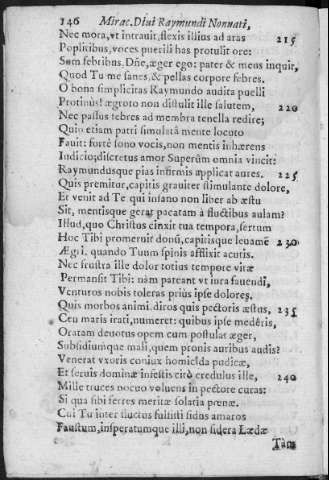 146 Mirac. Diui Raymundi Nonnati,
Nec mora, vt intrauit, flexis illius ad aras 215
Poplitibus, voces puerili has protulit ore:
Sum febribus, Dñe, æger ego: pater & meus inquir,
Quod Tu me sanes, & pellas corpore febres.
O bona simplicitas Raymundo audita puelli
Protinus! ægroto non distulit ille salutem, 220
Nec passus febres ad membra tenella redire;
Quin etiam patri simulatâ mente locuto
Fauit: fortè sono vocis, non mentis inhærens
Iudicio; discretus amor Superûm omnia vincit:
Raymundusque pias infirmis applicat aures. 225
Quis premitur, capitis grauiter stimulante dolore,
Et venit ad Te qui insano non liber ab æstu
Sit, mentisque gerat pacatam à fluctibus aulam?
Illud, quo Christus cinxit tua tempora, sertum
Hoc Tibi promeruit donū, capitisque leuamē 230
Ægri. quando Tuum spinis afflixit acutis.
Nec frustra ille dolor totius tempore vitæ
Permansit Tibi: nàm pateant vt iura fauendi,
Venturos nobis toleras priùs ipse dolores.
Quis morbos animi diros quis pectoris æstus, 235
Ceu maris irati, numeret: quibus ipse medêris,
Oratam deuotus opem cum postulat æger,
Subsidiumque mali, quem pronis auribus audis?
Venerat vxoris coniux homicida pudicæ,
Et seruis dominæ infestis citò credulus ille, 240
Mille truces nocuo voluens in pectore curas:
Si qua sibi ferres meritæ solatia pœnæ.
Cui Tu inter fluctus fulsisti sidus amaros
Faustum, insperatumque illi, non sidera Lædæ
Tàm